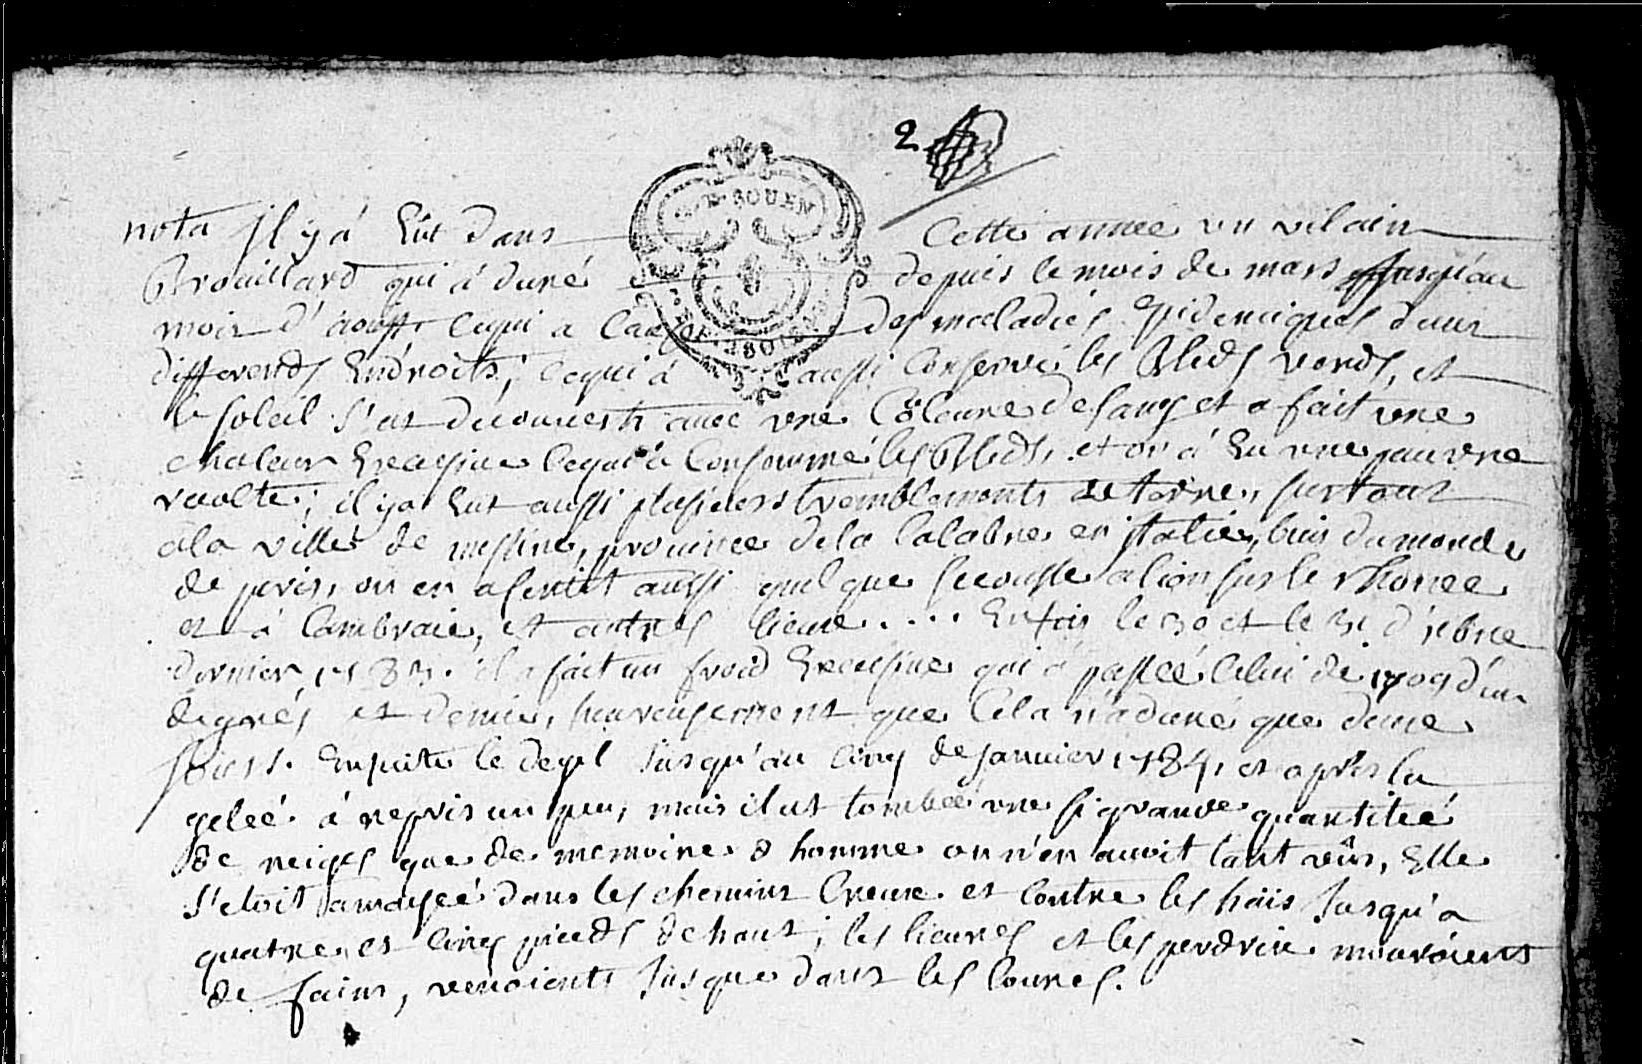 2
nota Il y à Eut dans cette année un vilain
Brouillard qui à duré depuis le mois de mars jusqu'au
mois d'aoust ce qui a causé des maladies Epidemiques dans
differends Endroits, ce qui à aussi conservé les Bleds verds, et
le soleil s'est découverts avec une couleure de sang et a fait une
chaleur Excessive ce qui à consommé les Bleds, et on à Eu une pauvre
recolte; il y a Eut aussi plusieurs tremblements de terre, surtout
à la ville de messine, province de la Calabre en italie, bien du monde
de peris, on en a sentit aussi quelque secousse a lion sur le rhonee
et à Cambraie, et autres lieux.... Enfin le 30 et le 31 d'xbre
dernier 1783. il a fait un froid Excessive qui à passeé celui de 1709 d'un
degrés et demie, heureusement que cela n'a duré que deux
jours. Ensuite le degel jusqu'au cinq de janvier 1784, et après la
geleé à repris un peu, mais il est tombeé une si grande quantiteé
de neiges que de memoire d homme on n'en avoit tant vûs, Elle
s'etoit amasseé dans les chemins creux et contre les haïs jusqu'a
quatre, et cinq pieds de haut; les lievres et les perdrix mouroients
de faim, venoients jusque dans les coures.